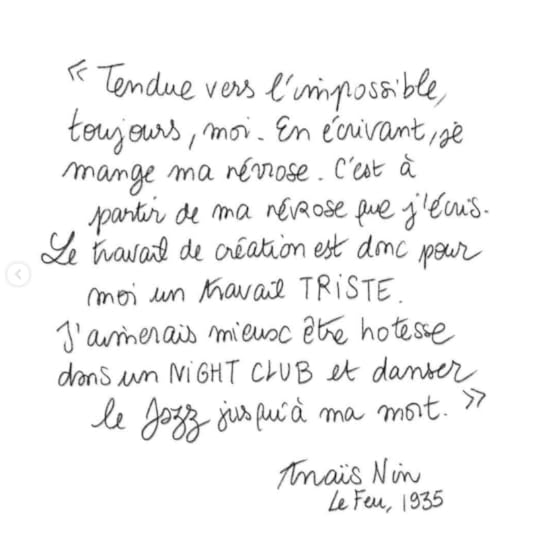 « Tendue vers l'impossible,
toujours, moi. En écrivant, je
mange ma névrose. C'est à
partir de ma névRose que j'écris.
Le travail de création est donc pour
moi un travail TRiSTE.
J'aimerais mieux être hotesse
dans un NiGHT CLUB et danser
le Jazz jusqu'à ma mort. »
Anaïs Nin
Le Feu, 1935